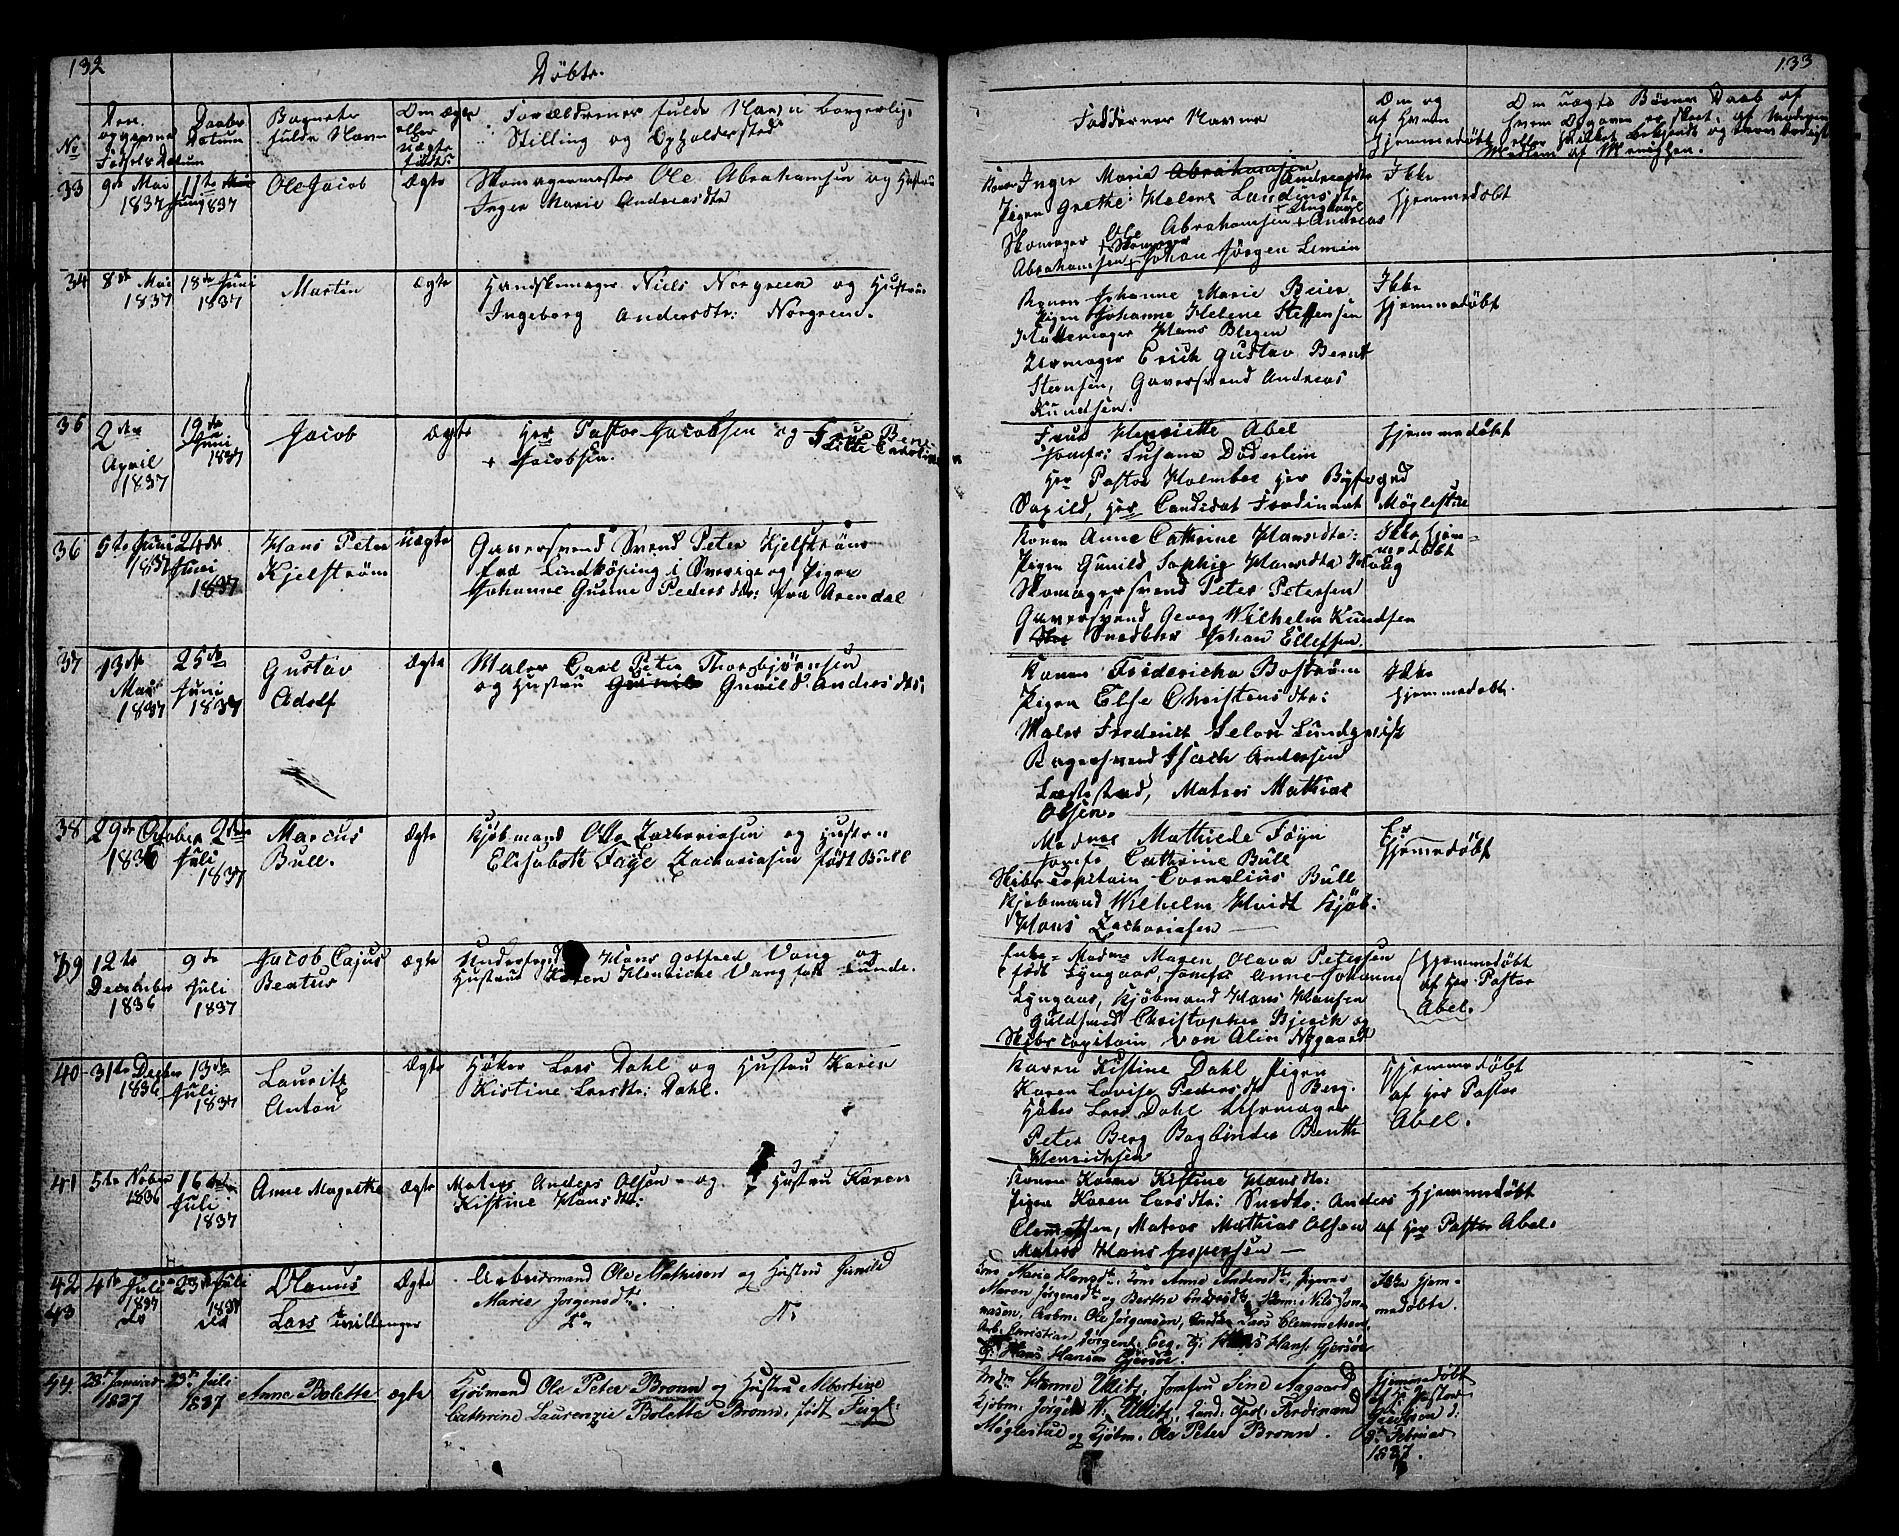 132
Döbte.
No
Den
opgivne
Födsels Datum
Daabs
Datum
Barnets
fulde Navn
Om ægte
eller
uægte
födt
Forældrenes fulde Navn, borgerlig
Stilling og Opholdssted
33
9de Mai
1837
11te
Juny 1837
Ole Jacob
Ægte
Skomagermester Ole Abrahamsen og Hustru
Inger Marie Andreasdtr
34
8de Mai
1837
18de Juni
1837
Martin
Ægte
Handskemager Niels Norgreen og Hustru
Ingeborg Andersdtr: Norgreen.
36
2den
April
1837
19de
Juni
1837
Jacob
Ægte
Her Pastor Jacobsen og Frue
+ Jacobsen.
36
5te Juni
1837
24de
Juni
1837
Hans Peter
Kjelström
Uægte
Garversvend Svend Peter Kjelström
fra Lindköping i Sverige og Pigen
Johanne Gurine Pedersdtr: fra Arendal
37
13de
Mai
1837
25de
Juni
1837
Gustav
Adolf
Ægte
Maler Carl Peter Thorbjörnsen
og Hustru Gunild Andersdtr:
38
29de October
1836
2den
Juli
1837
Marcus
Bull.
Ægte
Kjöbmand Otto Zachariasen og Hustru
Elisabeth Faye Zachariasen födt Bull
39
12te
December
1836
9de
Juli
1837
Jacob Cajus
Beatus
Ægte
Hans Gotfred Vang og
Hustrue Karen Henriche Vang födt Lunde.
40
31te Decber
1836
13de
Juli
1837
Lauritz
Anton
Ægte
Höker Lars Dahl og Hustru Karen
Kistine Larsdtr: Dahl.
41
5te Nobr
1836
16de
Juli
1837
Anne Magrethe
Ægte
Matros Anders Olsen og Hustru Karen
Kistine Hansdtr:
42
4de Juli
1837
23de Juli
1837
Olaus
Ægte
Arbeidsmand Ole Mathisen og Hustru Gunild
Marie Jörgensdtr.
43
do
do
Lars tvillinger
44
23de Januar
1837
23de Juli
1837
Anne Bolette
Ægte
Kjöbmand Ole Peter Bronn og Hustru Albertine
Cathrine Laurenzie Boletta Bronn, födt Fugl.
133
Faddernes Navne
Om og
af hvem
Hjemmedöbt
Om uægte Börns Daab af
Medlem af Menigheden.
Konen Inger Marie Abrahamsen Andreasdtr
Pigen Grethe Helene Lundinsdtr
Skomager Ole Abrahamsen + Andreas
Abrahamsen + Skomager Johan Jörgen Lemein
Ikke
Hjemmedöbt
Konen Johanne Marie Beier
Pigen Johanne Helene Steffensen
Hattemager Hans Blegen
Urmager Erich Gustav Berndt
Stensen, Garversvend Andreas
Knudsen.
Ikke
Hjemmedöbt
Frue Henriette Abel
Jomfr: Susana Döderlein
Her Pastor Holmboe Her Byfoged
Saxild, Her Candidat Ferdinant Möglestue
Hjemmedöbt
Konen Anne Cathrine Hansdtr:
Pigen Gunild Sophie Hansdtr Houg
Skomagersvend Peter Petersen
Garversvend Georg Wilhelm Knudsen
Snedker Johan Ellefsen.
Ikke Hjem=
medöbt
Konen Fredericha Boström
Pigen Else Christensdtr:
Maler Frederick Selou Lundqvist
Bagersvend Isach Andersen
Læstestad, Matros Mathias
Olsen.
Ikke
Hjemmedöbt.
Madme Mathilde Föyn
Jomfr Cathrine Bull
Skibscapitain Cornelius Bull
Kjöbmand Wilhelm Hvidt Kjöb:
Hans Zachariasen
Er
Hjemmedöbt
Enke=Madme Maren Olava Petersen
födt Lyngaas, Jomfr Anne Johanne
Lyngaas, Kjöbmand Hans Hansen
Guldsmed Christopher Bjerck og
Skibscapitain von Alin Nygaard
Hjemmedöbt
af Her Pastor
Abel.
Karen Kistine Dahl Pigen
Karen Lovise Pedersdtr Berg.
Höker Lars Dahl Uhrmager
Peter Berg Bogbinder Benth
Henrichsen
Hjemmedöbt
af Her Pastor
Abel.
Konen Karen Kistine Hansdtr:
Pigen Karen Larsdtr: Snedkr: Anders
Clemetsen, Matros Mathias Olsen
Matros Hans Jespersen —
Hjemmedöbt
af Her Pastor Abel.
Kone Maria Hansdtr. Kone Anne Andersdtr, Pigerne
Maren Jörgensdtr og Berthe Andersdtr,
Arbm: Ole Jörgensen, Lars Clemmetsen,
Hans Hansen Gjersöe.
Ikke Hjem=
medöbte.
Hanne Ullitz, Jomfru Sine Aagaard
Kjöbm: Jörgen N. Ullitz, Cand: Carl Ferdinand
Möglestue og Kjöbm. Ole Peter Bronn.
Hjemmedöbt
af Hr Pastor
Jacobsen d:
Februar
1837.